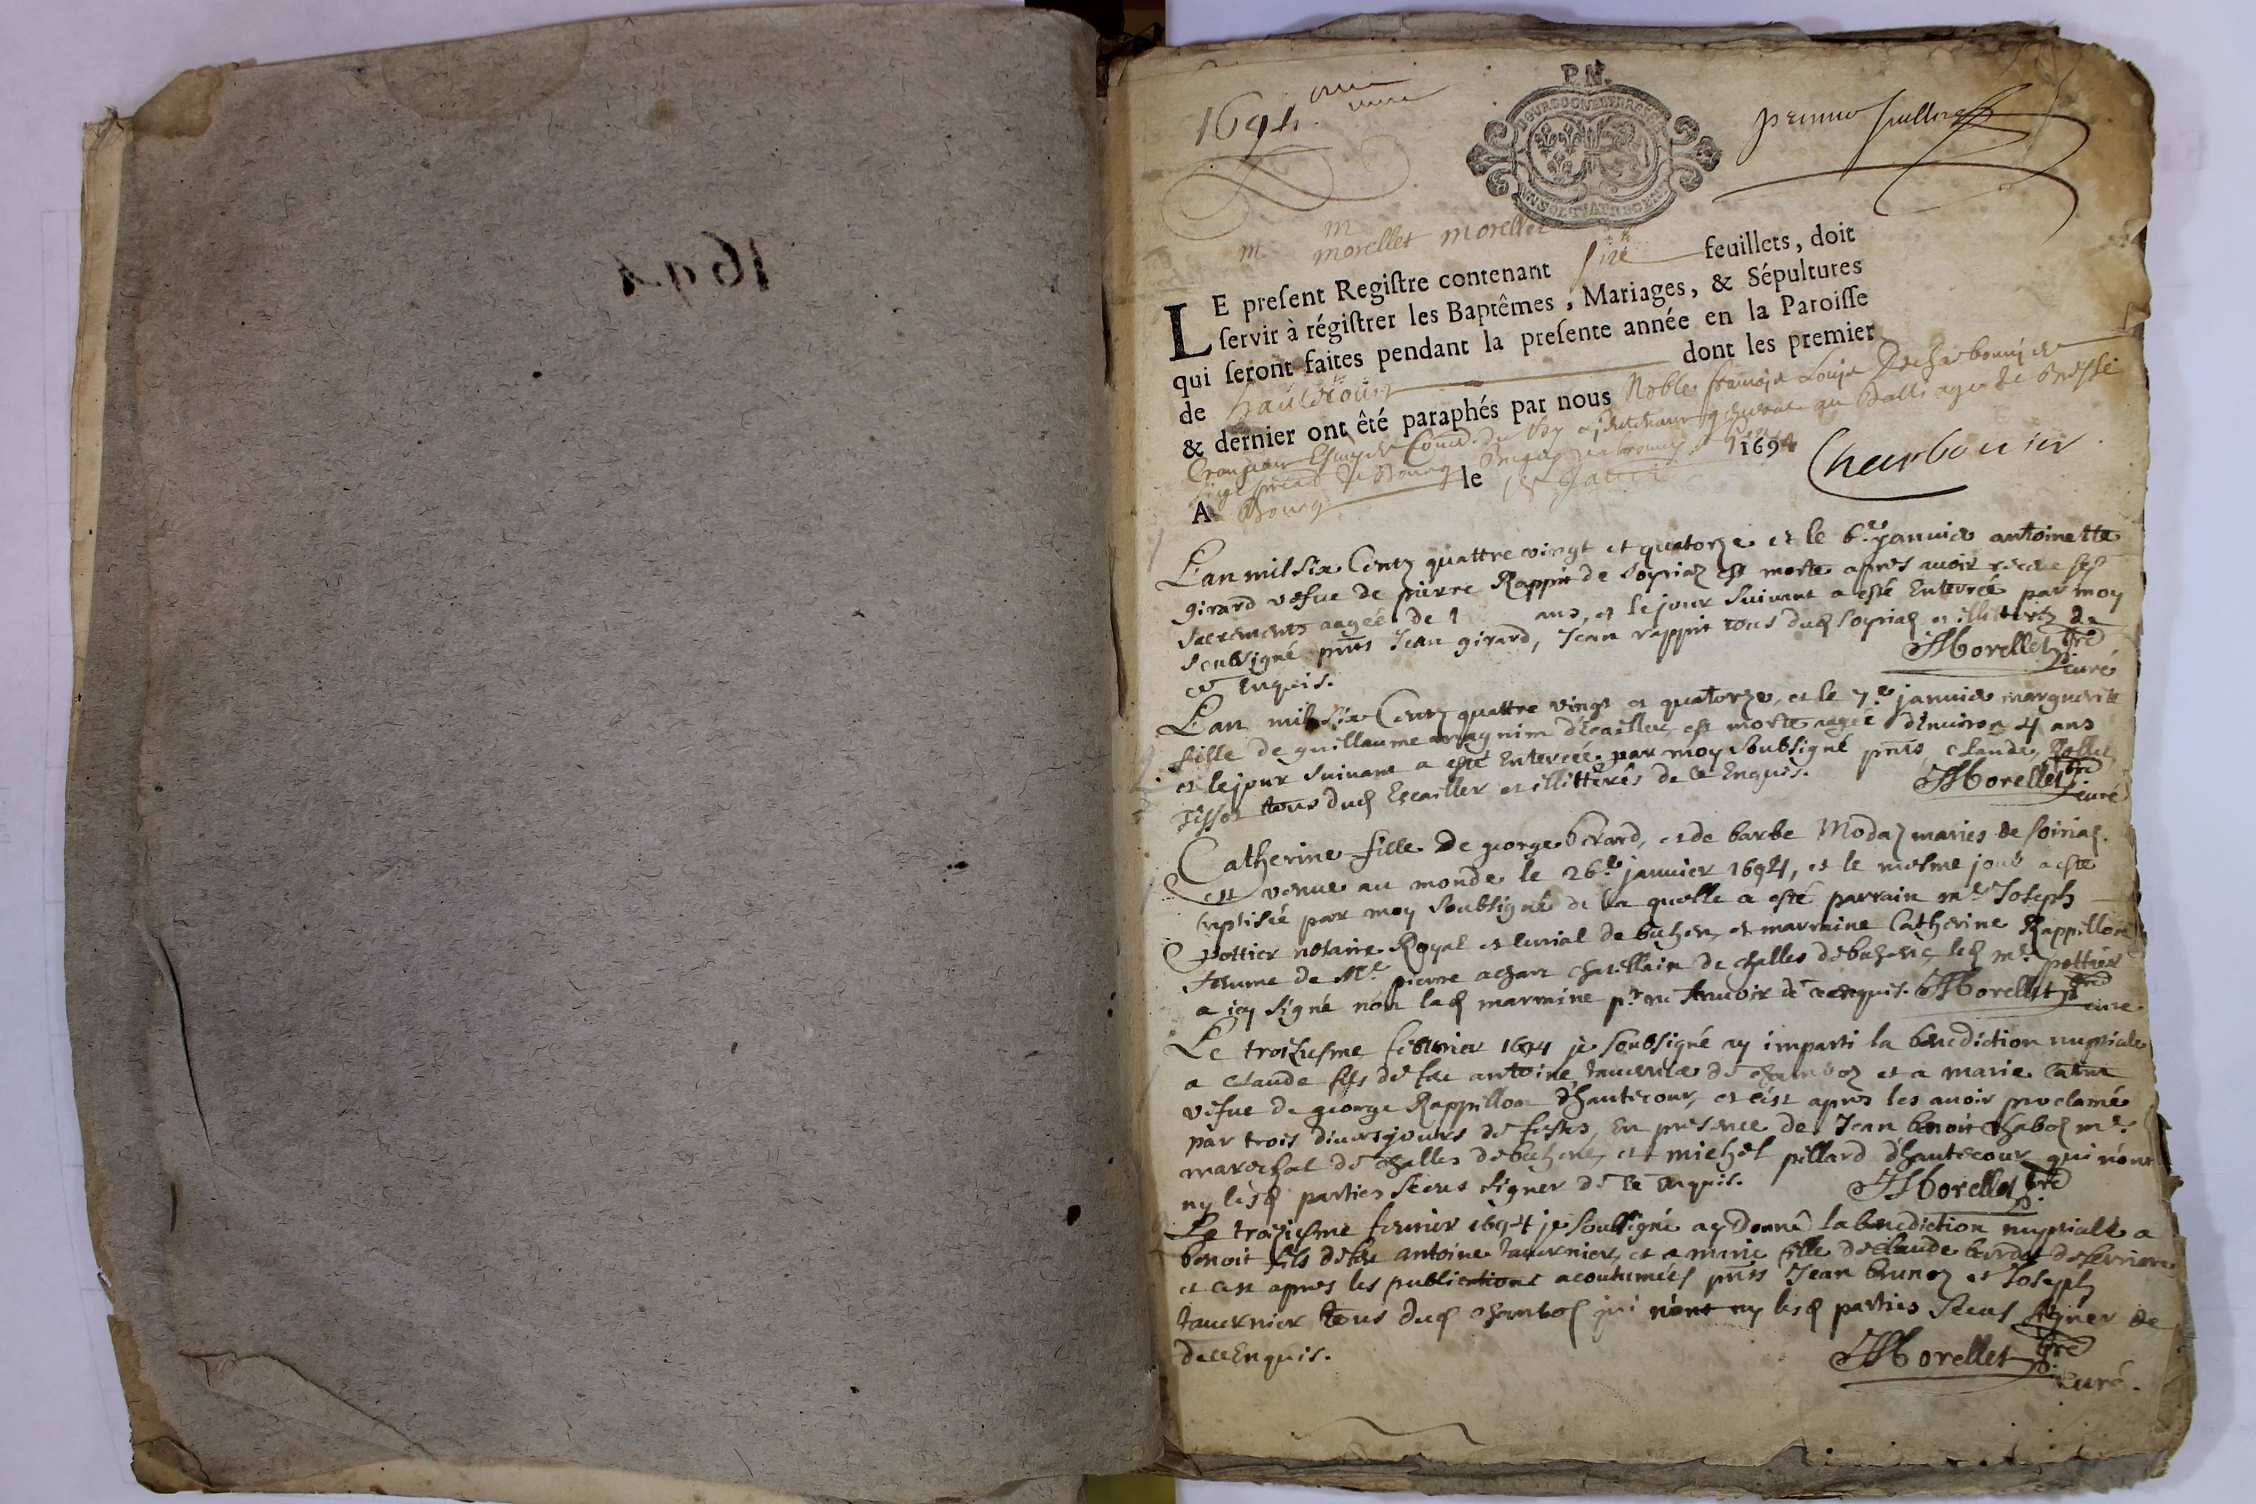 1694
1694
P. N.
premier feuillet
m
m morellet morellet
LE present Registre contenant six feuillets, doit
servir à régistrer les Baptêmes, Mariages, & Sépultures
qui seront faites pendant la presente année en la Paroisse
de hautecour dont les premier
& dernier ont été paraphés par nous Noble françois Louis De charbonnier
Siege de Bourg
A Bourg le 1694 Charbonier
L'an mil six Centz quattre vingt et quatorze et le 6.e janvier antoinette
girard vefue de pierre Rappit de soyriaz est morte apres auoir receue ses
sacrements aagée de ans, et le jour suivant a esté Enterrée par moy
soubsigné pnts Jean girard, Jean rappit tous dud soyriaz et illitterez de
ce Enquis. Morellet pre curé
L'an mil six Centz quattre vingt et quatorze, et le 7.e janvier marguerite
fille de guillaume magnin d'Ecailler est morte aagée d'Environ 4 ans
et le jour suivant a esté Enterrée par moy soubsigné pnts, claude
tissot tous dud Escailler et illitterés de ce Enquis. Morellet pre curé
Catherine fille de george berard, et de barbe Modaz maries de soiriaz
est venue au monde le 26.e janvier 1694, et le mesme jour a esté
baptisée par moy soubsigné de la quelle a esté parrain m.e Joseph
pottier notaire Royal et curial de buhen, et marraine Catherine Rappillon
femme de M.e pierre achard chatellain de challes de buhenc, led m.e pottier
a icy signé non lad marraine p.r ne scavoir de ce enquis. Morellet pre curé
Le troiziesme febvrier 1694 je soubsigné ay imparti la benediction nuptiale
a claude fils de feu antoine tavernier de chambos et a marie
vefue de george Rappillon d'hautecour, et c'est apres les avoir proclamé
par trois divers jours de festes, En presence de Jean benoit chaboz m.e
marechal de challes de buhenc, et michel pillard d'hautecour qui n'ont
ny lesd parties sceus signer de ce enquis. Morellet pre
Le troiziesme fevrier 1694 je soubsigné ay donné la benediction nuptiale a
benoit fils de feu antoine tavernier, et a marie fille de claude
et c'est apres les publications acoutumées pnts Jean brunoz et Joseph
tavernier tous dud chambos qui n'ont ny lesd parties sceus signer de
de ce Enquis. Morellet pre
curé.